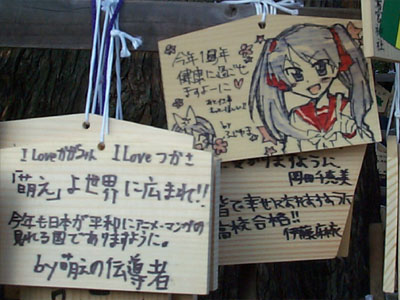 I Love かがみん I Love つかさ
「萌え」よ世界に広まれ!!
今年も日本が平和にアニメ・マンガの
見れる国でありますように。
by萌えの伝導者
今年1周年
健康に過ごせ
ますよーに♡
ますように
岡田千恵美
皆で幸せに
高校合格!!
伊藤麻衣